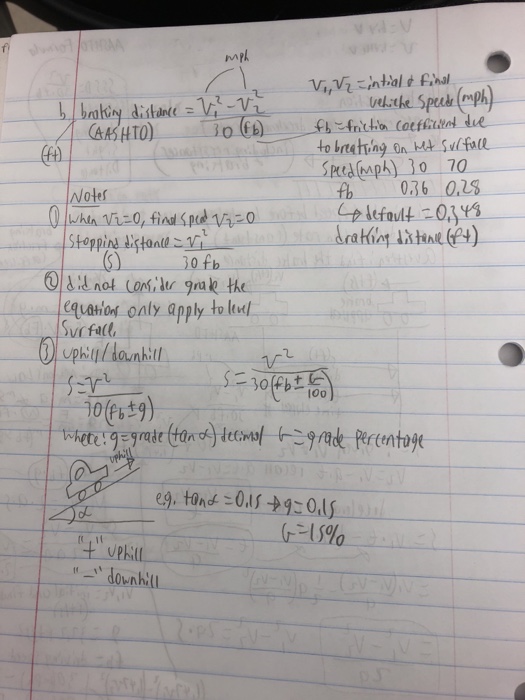 mph
b braking distance = V₁² - V₂² / 30 (fb)
(AASHTO)
(ft)
V₁, V₂ = intial & final
vehicle speeds (mph)
fb = friction coefficient due
to breatring on wet surface
Speed (mph) 30 70
fb 0.36 0.28
↳ default = 0.348
bratring distance (ft)
Notes
① when V₂=0, final speed V₂=0
Stopping distance = V₁² / 30 fb
(S)
② did not consider grade the
equations only apply to level
surface.
③ uphill/downhill
S = V² / 30 (fb ± g)
S = V² / 30 (fb ± G/100)
where: g = grade (tan α) decimal G = grade percentage
uphill
α
e.g. tan α = 0.15 → g = 0.15
G = 15%
"+" uphill
"-" downhill